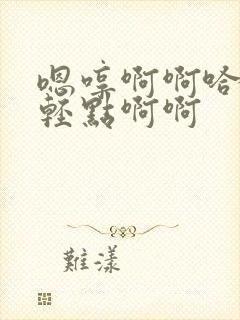 嗯哼啊啊哈
輕點啊啊
難漾